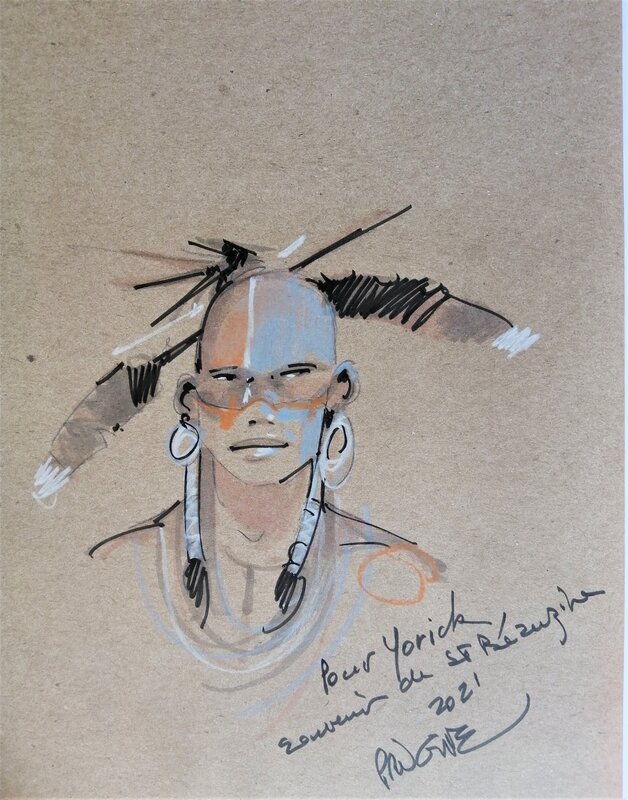 Pour Yorick
souvenir de St Bézuzire
2021
PRUGNE